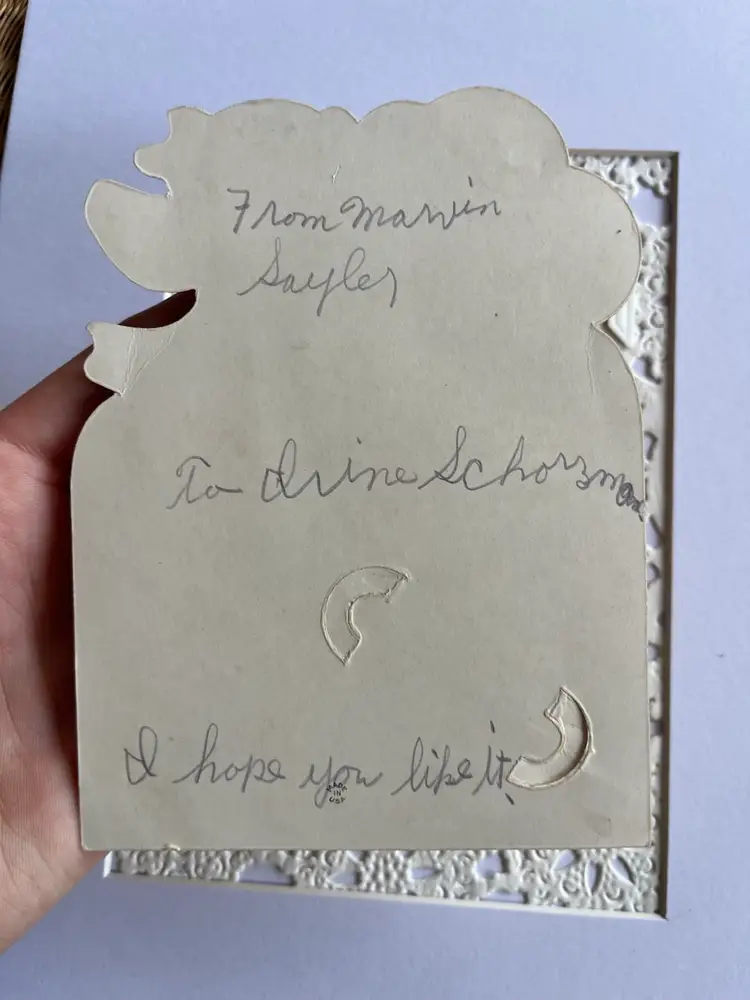 From Marvin
Sayler
To Irine Schorzman
I hope you like it.
MADE
IN
USA